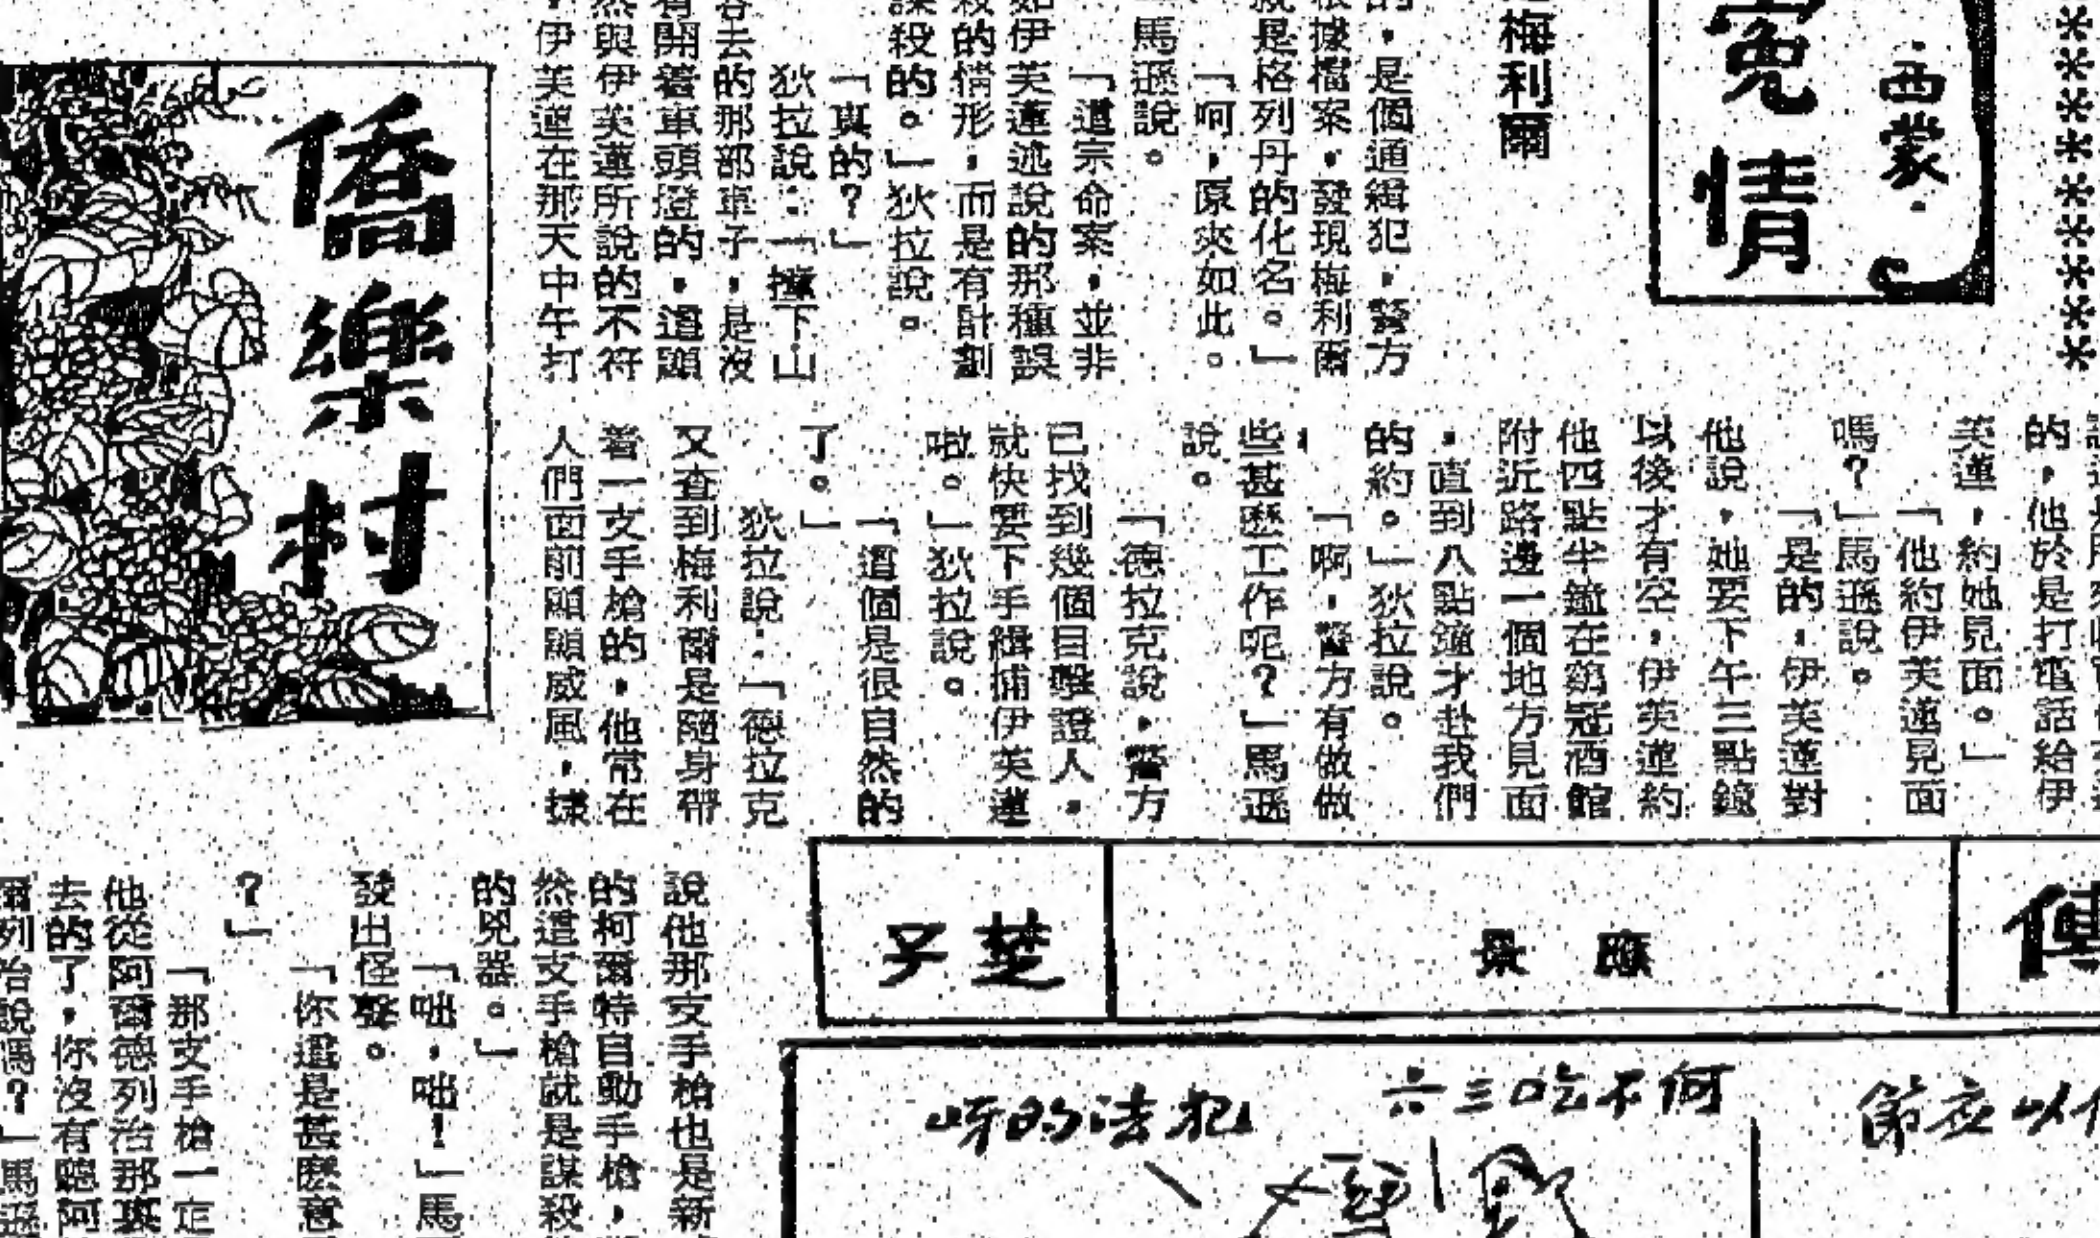 冤情
·西蒙·
梅利爾
的,是個通緝犯,警方
根據檔案,發現梅利爾
就是格列丹的化名。」
「呵,原來如此。
馬遜說。
「這宗命案,並非
如伊芙蓮述說的那種誤
殺的情形,而是有計劃
謀殺的。」狄拉說。
「真的?」
狄拉說:「撞下山
谷去的那部車子,是沒
有開着車頭燈的,這顯
然與伊芙蓮所說的不符
,伊芙蓮在那天中午打
的,他於是打電話給伊
芙蓮,約她見面。」
「他約伊芙蓮見面
嗎?」馬遜說。
「是的,伊芙蓮對
他說,她要下午三點鐘
以後才有空,伊芙蓮約
他四點半鐘在第冠酒館
附近路邊一個地方見面
,直到八點鐘才赴我們
的約。」狄拉說。
「啊,警方有做做
些甚麽工作呢?」馬遜
說。
「德拉克說,警方
已找到幾個目擊證人,
就快要下手緝捕伊芙蓮
啦。」狄拉說。
「這個是很自然的
了。」
狄拉說:「德拉克
又查到梅利爾是隨身帶
着一支手槍的,他常在
人們面前顯顯威風,據
說他那支手槍也是新
的柯爾特自動手槍,
然這支手槍就是謀殺
的兇器。」
「咄,咄!」馬
發出怪聲。
「你這是甚麽意
?」
「那支手槍一定
他從阿爾德列治那裏
去的了,你沒有聽阿
爾列治說嗎?」馬遜
僑樂村
傅
應景
楚子
節應以
何不吃三六
犯法的呀